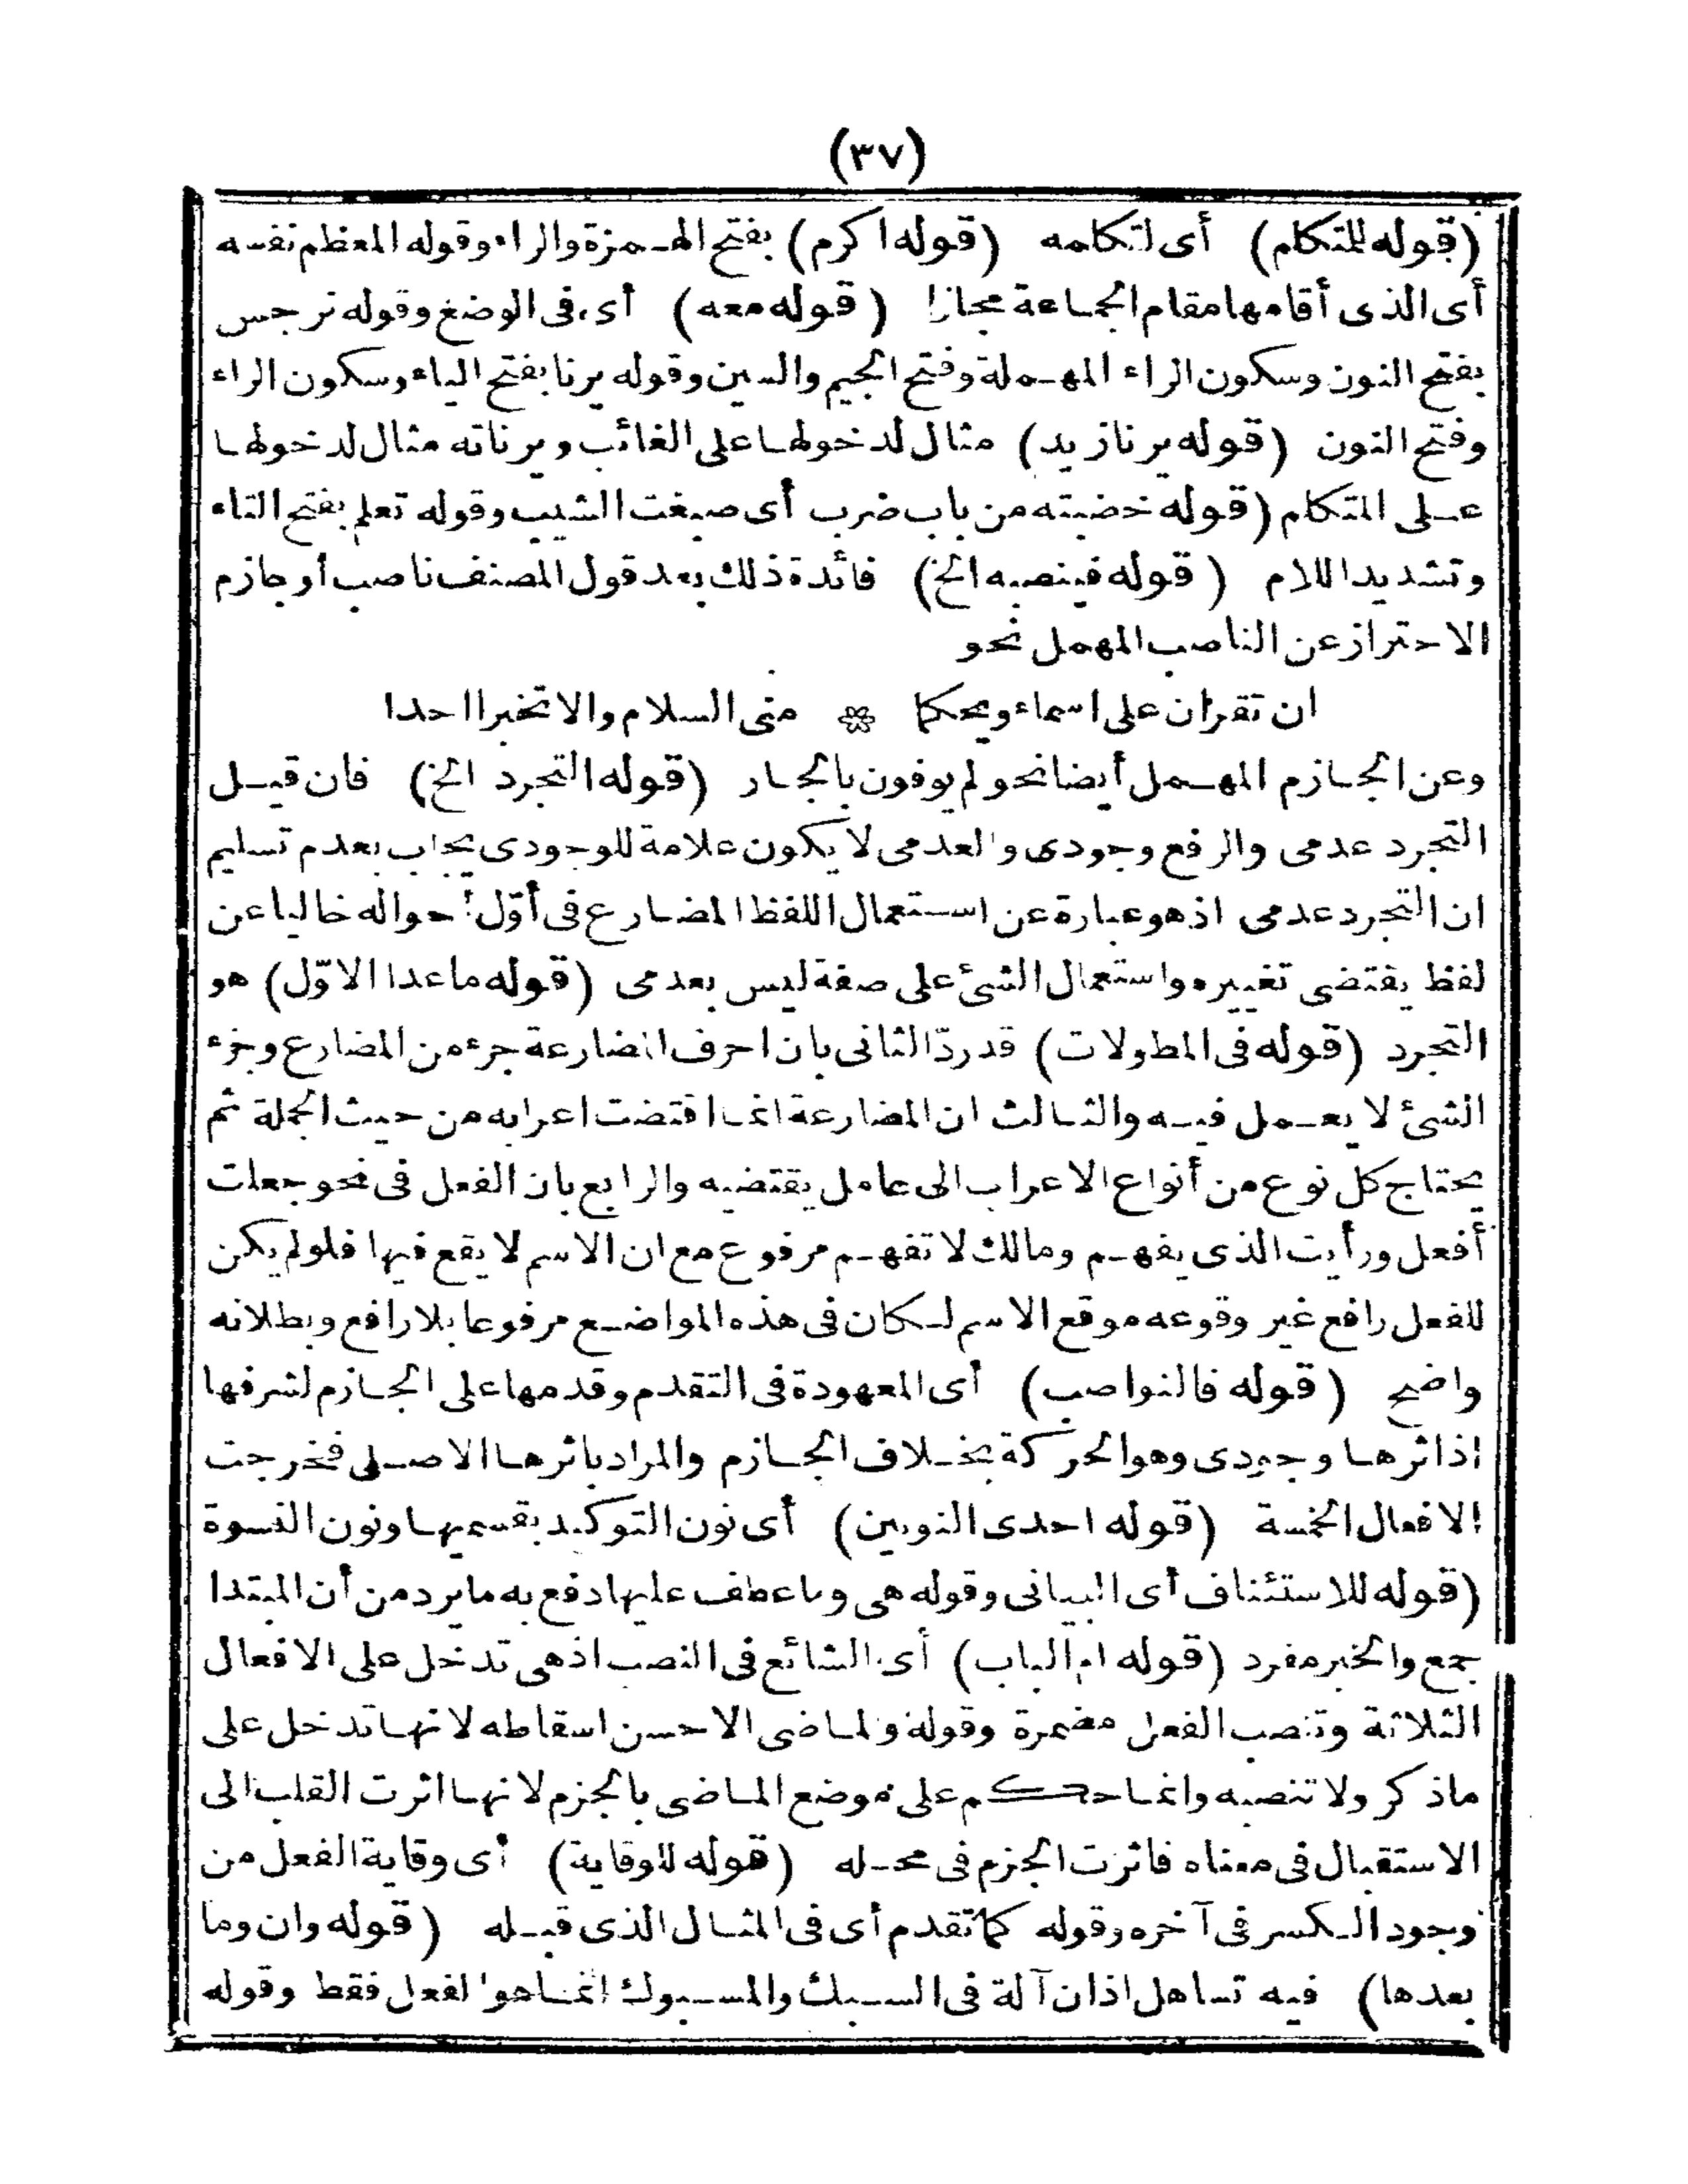 (٣٧)
(قوله للمتكلم) أى لتكلمه (قوله اكرم) بفتح الهمزة والراء وقوله المعظم نفسه
أى الذى أقامها مقام الجماعة مجازا (قوله معه) أى فى الوضع وقوله نرجس
بفتح النون وسكون الراء المهملة وفتح الجيم والسين وقوله يرنا بفتح الياء وسكون الراء
وفتح النون (قوله يرنا زيد) مثال لدخولها على الغائب ويرناته مثال لدخولها
على المتكلم (قوله خضبته من باب ضرب أى صبغت الشيب وقوله تعلم بفتح التاء
وتشديد اللام (قوله فينصبه الخ) فائدة ذلك بعد قول المصنف ناصب أو جازم
الاحتراز عن الناصب المهمل نحو
ان تقرآن على اسماء ويحكما ۞ منى السلام والا تخبرا احدا
وعن الجازم المهمل أيضا نحو لم يوفون بالجار (قوله التجرد الخ) فان قيل
التجرد عدمى والرفع وجودى والعدمى لا يكون علامة للوجودى يجاب بعدم تسليم
ان التجرد عدمى اذ هو عبارة عن استعمال اللفظ المضارع فى أوّل أحواله خاليا عن
لفظ يقتضى تغييره واستعمال الشئ على صفة ليس بعدمى (قوله ما عدا الاوّل) هو
التجرد (قوله فى المطولات) قد ردّ الثانى بان احرف المضارعة جزء من المضارع وجزء
الشئ لا يعمل فيه والثالث ان المضارعة انما اقتضت اعرابه من حيث الجملة ثم
يحتاج كل نوع من أنواع الاعراب الى عامل يقتضيه والرابع بان الفعل فى نحو جعلت
أفعل ورأيت الذى يفهم ومالك لا تفهم مرفوع مع ان الاسم لا يقع فيها فلو لم يكن
للفعل رافع غير وقوعه موقع الاسم لكان فى هذه المواضع مرفوعا بلا رافع وبطلانه
واضح (قوله فالنواصب) أى المعهودة فى التقدم وقدمها على الجازم لشرفها
اذ اثرها وجودى وهو الحركة بخلاف الجازم والمراد باثرها الاصلى فخرجت
الافعال الخمسة (قوله احدى النونين) أى نون التوكيد بقسميها ونون النسوة
(قوله للاستئناف أى البيانى وقوله هى وما عطف عليها دفع به ما يرد من أن المبتدا
جمع والخبر مفرد (قوله ام الباب) أى الشائع فى النصب اذ هى تدخل على الافعال
الثلاثة وتنصب الفعل مضمرة وقوله ولماضى الاحسن اسقاطه لانها تدخل على
ماذكر ولا تنصبه وانما حكم على موضع الماضى بالجزم لانها اثرت القلب الى
الاستقبال فى معناه فاثرت الجزم فى محله (قوله للوقاية) أى وقاية الفعل من
وجود الكسر فى آخره وقوله كما تقدم أى فى المثال الذى قبله (قوله وان وما
بعدها) فيه تساهل اذ ان آلة فى السبك والمسبوك انما هو الفعل فقط وقوله